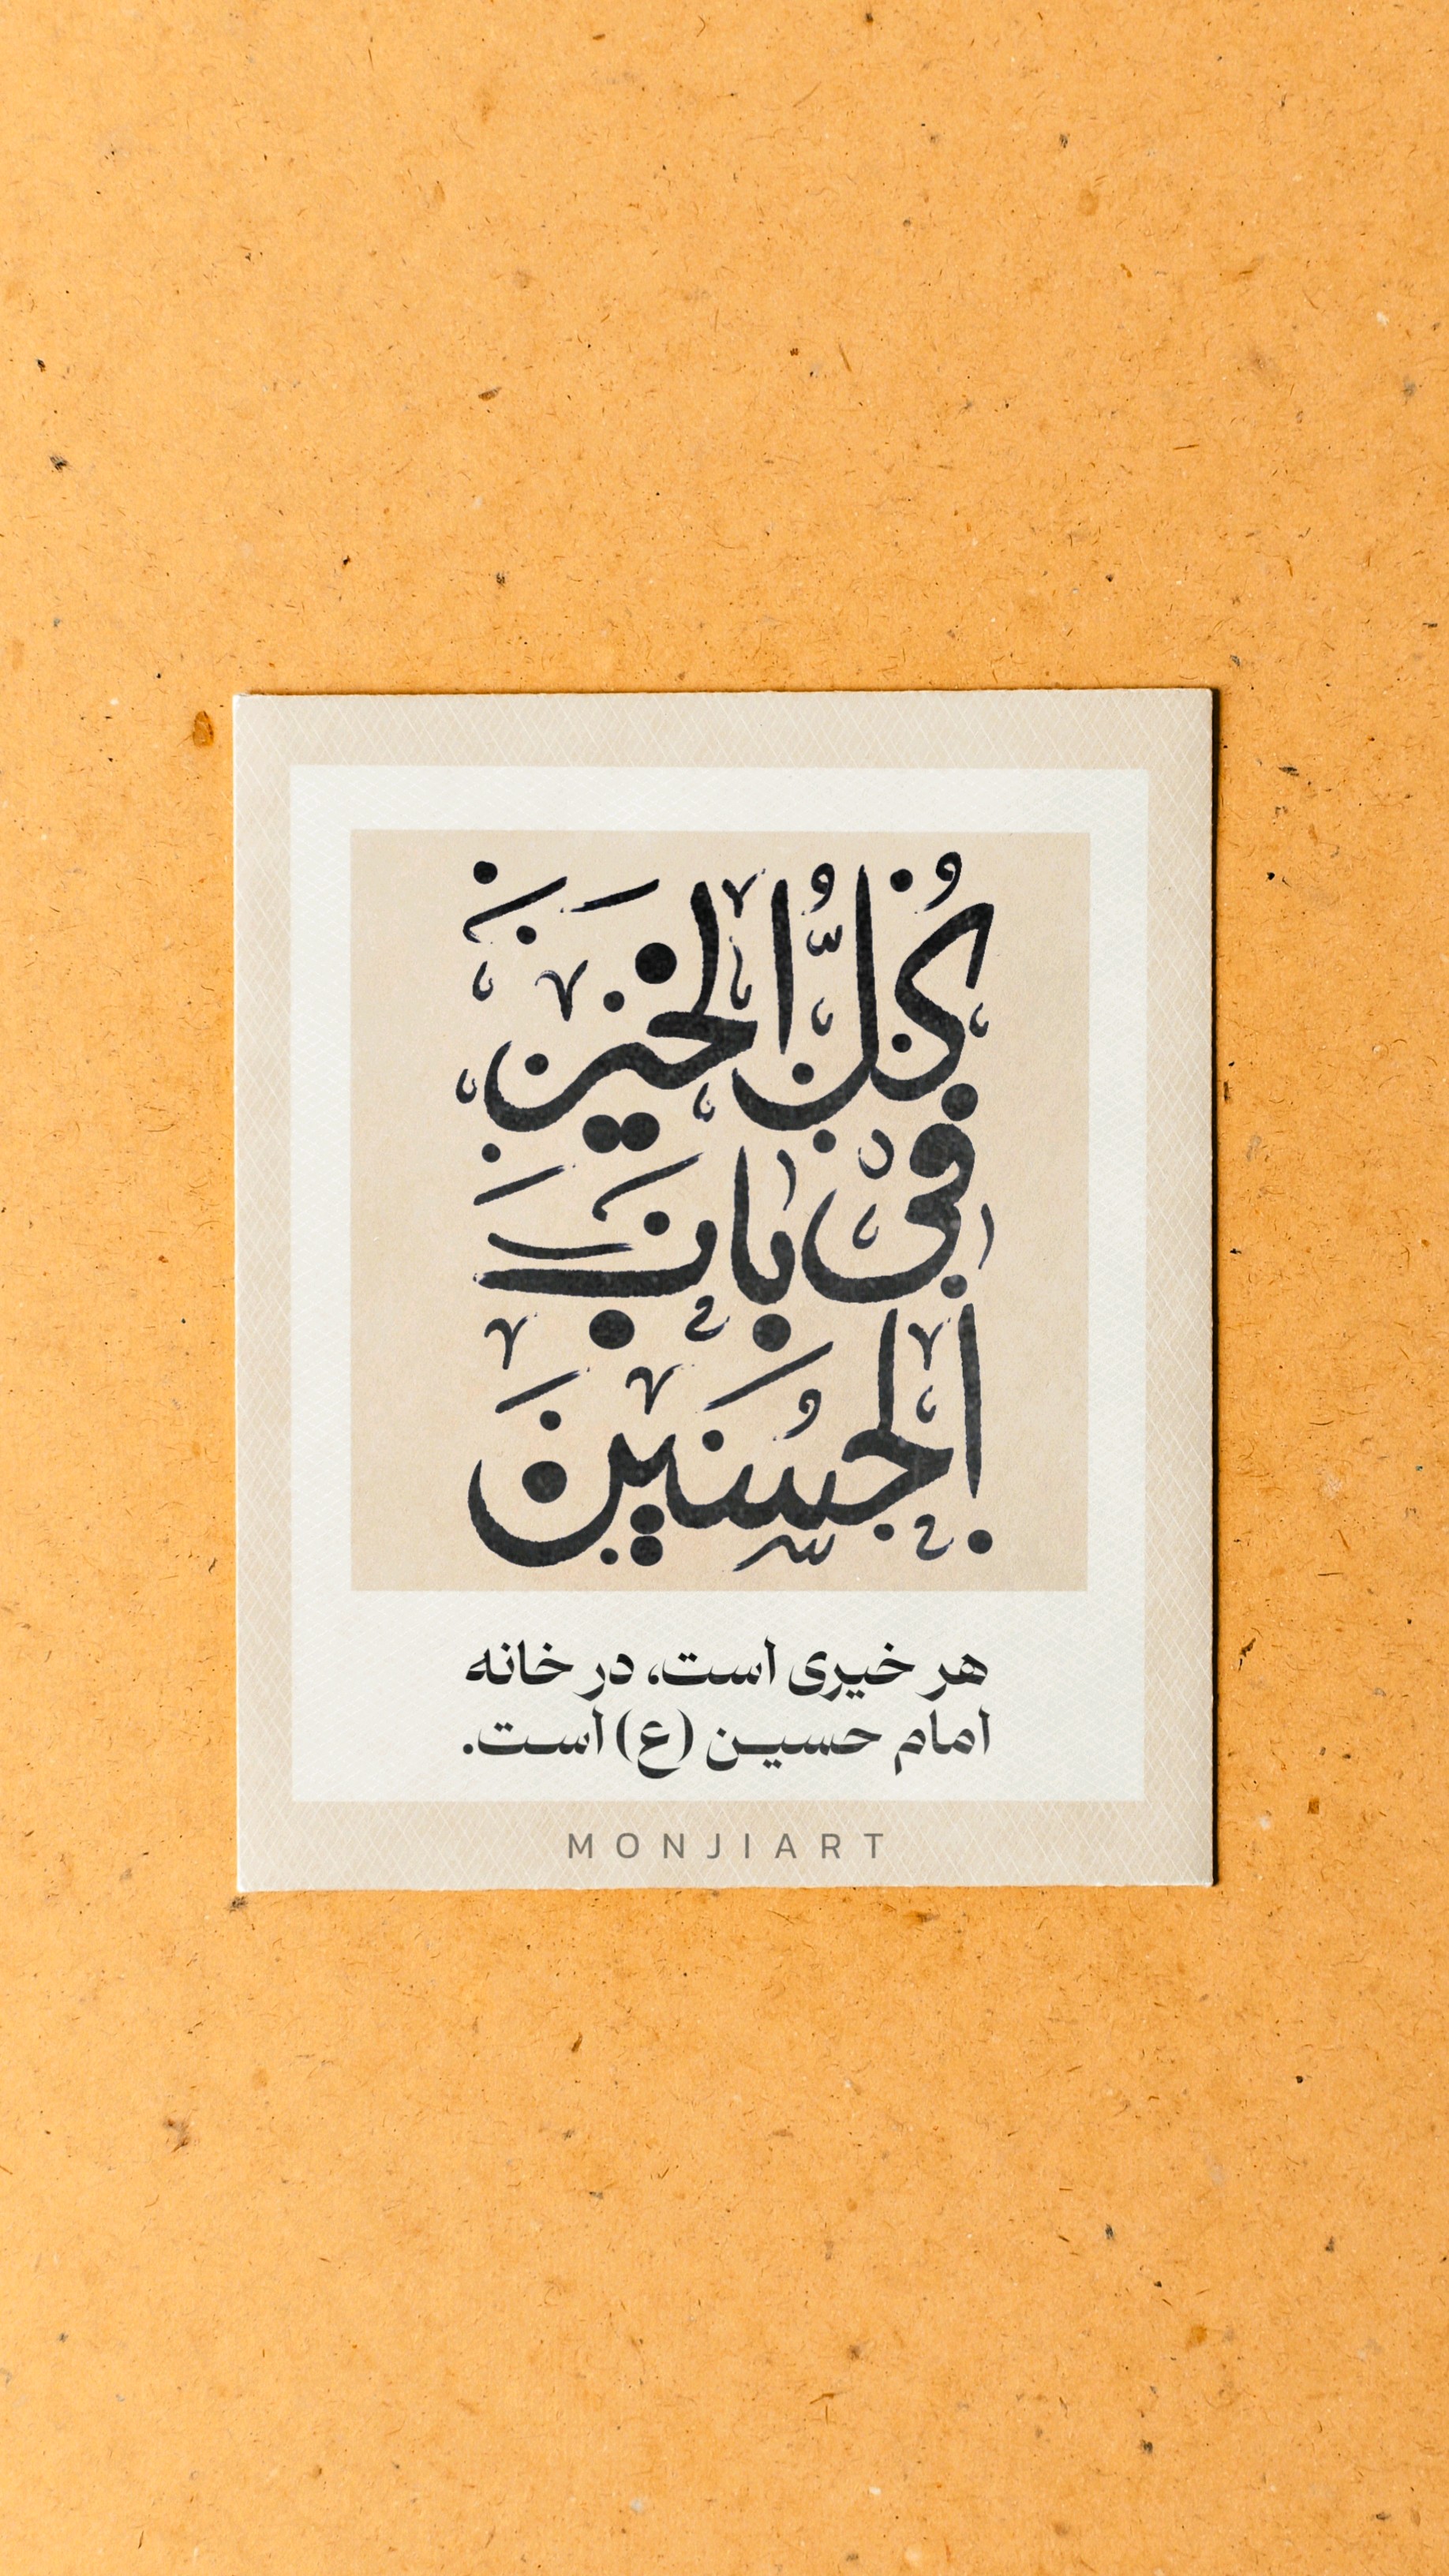 كُلُّ الخَیر
فی باب
الحُسَین
هر خیری است، در خانه
امام حسین (ع) است.
MONJIART